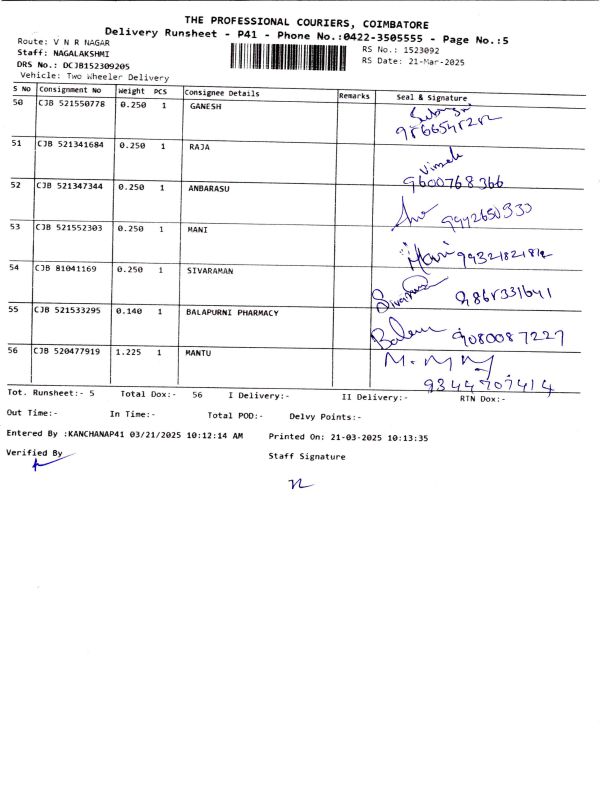 THE PROFESSIONAL COURIERS, COIMBATORE
Delivery Runsheet - P41 - Phone No.:0422-3505555 - Page No.:5
Route: V N R NAGAR
Staff: NAGALAKSHMI
DRS No.: DCJB152309205
Vehicle: Two Wheeler Delivery
RS No.: 1523092
RS Date: 21-Mar-2025
S No Consignment No Weight PCS Consignee Details Remarks Seal & Signature
50 CJB 521550778 0.250 1 GANESH
51 CJB 521341684 0.250 1 RAJA
9600768366
52 CJB 521347344 0.250 1 ANBARASU
53 CJB 521552303 0.250 1 MANI
Mani
54 CJB 81041169 0.250 1 SIVARAMAN
55 CJB 521533295 0.140 1 BALAPURNI PHARMACY
9080087227
56 CJB 520477919 1.225 1 MANTU
9344707414
Tot. Runsheet:- 5 Total Dox:- 56 I Delivery:- II Delivery:- RTN Dox:-
Out Time:- In Time:- Total POD:- Delvy Points:-
Entered By :KANCHANAP41 03/21/2025 10:12:14 AM Printed On: 21-03-2025 10:13:35
Verified By Staff Signature